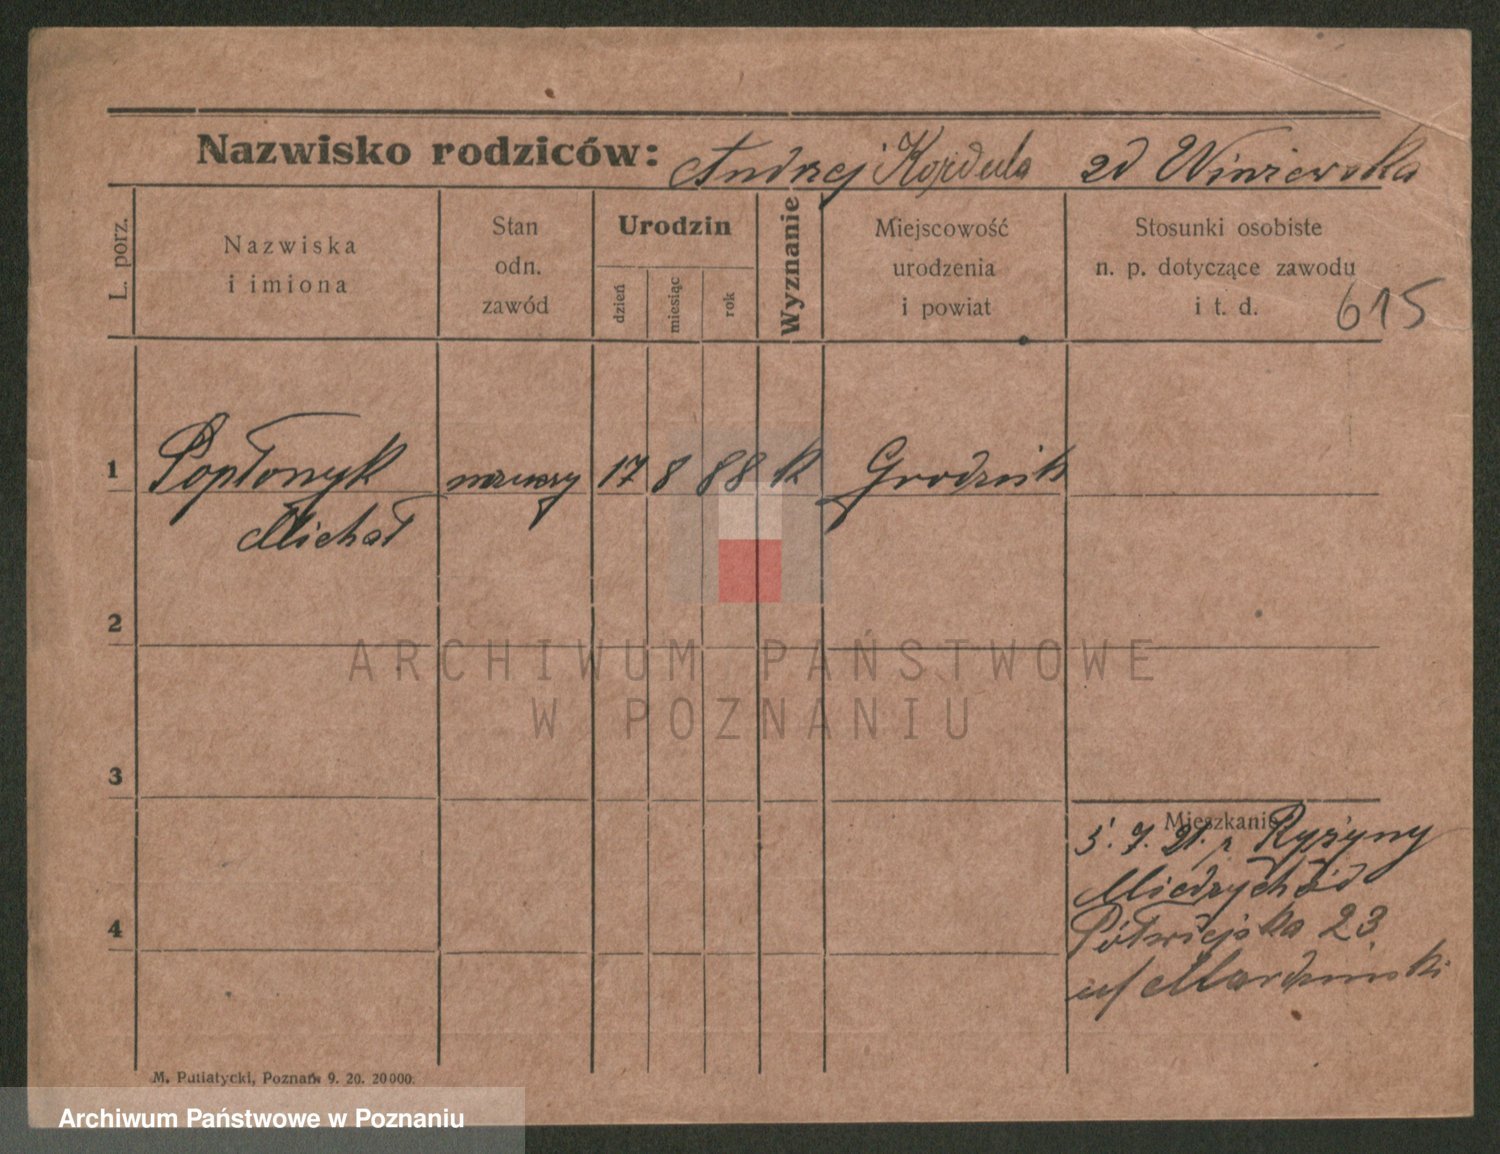 Nazwisko rodziców: Andrzej Kordula zd Winiewska
L. porz.
Nazwiska
i imiona
Stan
odn.
zawód
Urodzin
dzień
miesiąc
rok
Wyznanie
Miejscowość
urodzenia
i powiat
Stosunki osobiste
n. p. dotyczące zawodu
i t. d.
615
1 Popłonyk 17 8 88 k Grodzisk
Michał
2
3
4
Mieszkanie
5. 7. 21. z Ryżyny
Miedzychód
Półwiejska 23
u/
M. Putiatycki, Poznań 9. 20. 20000.
ARCHIWUM PAŃSTWOWE
W POZNANIU
Archiwum Państwowe w Poznaniu